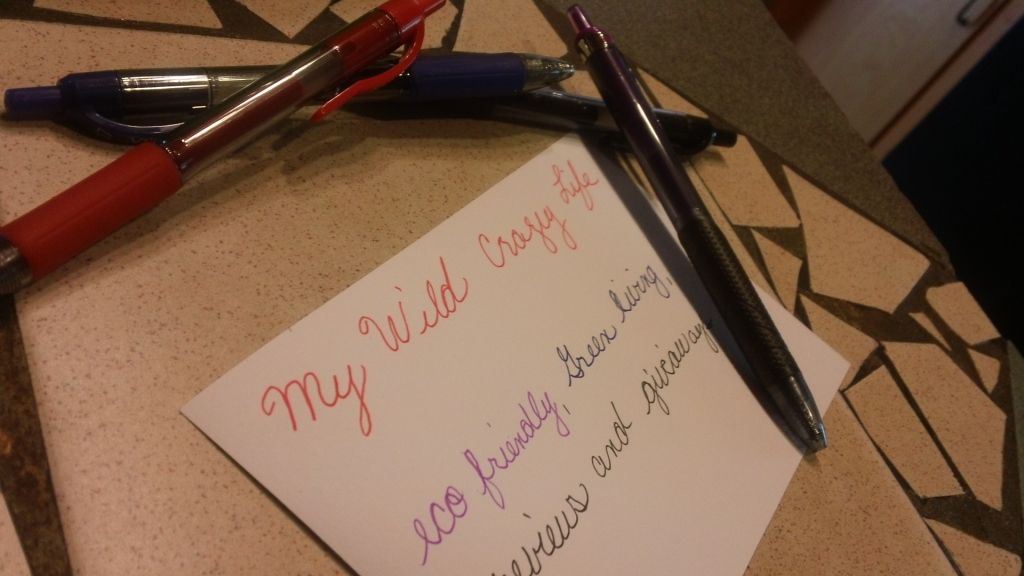 My Wild Crazy Life
eco friendly, Green living,
and giveaways